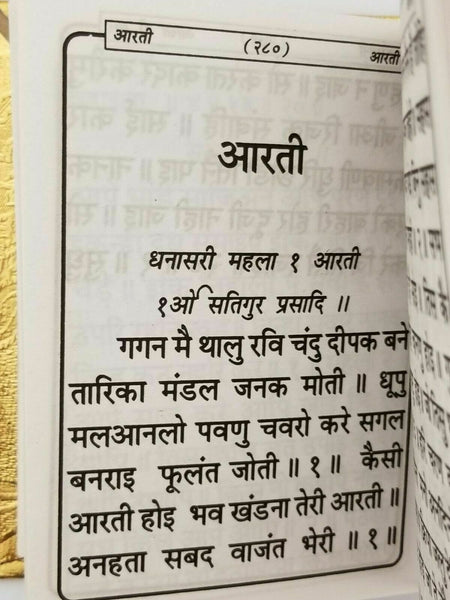 आरती (२८०) आरती
आरती
धनासरी महला १ आरती
१ओं सतिगुर प्रसादि ॥
गगन मै थालु रवि चंदु दीपक बने
तारिका मंडल जनक मोती ॥ धूपु
मलआनलो पवणु चवरो करे सगल
बनराइ फूलंत जोती ॥ १ ॥ कैसी
आरती होइ भव खंडना तेरी आरती ॥
अनहता सबद वाजंत भेरी ॥ १ ॥